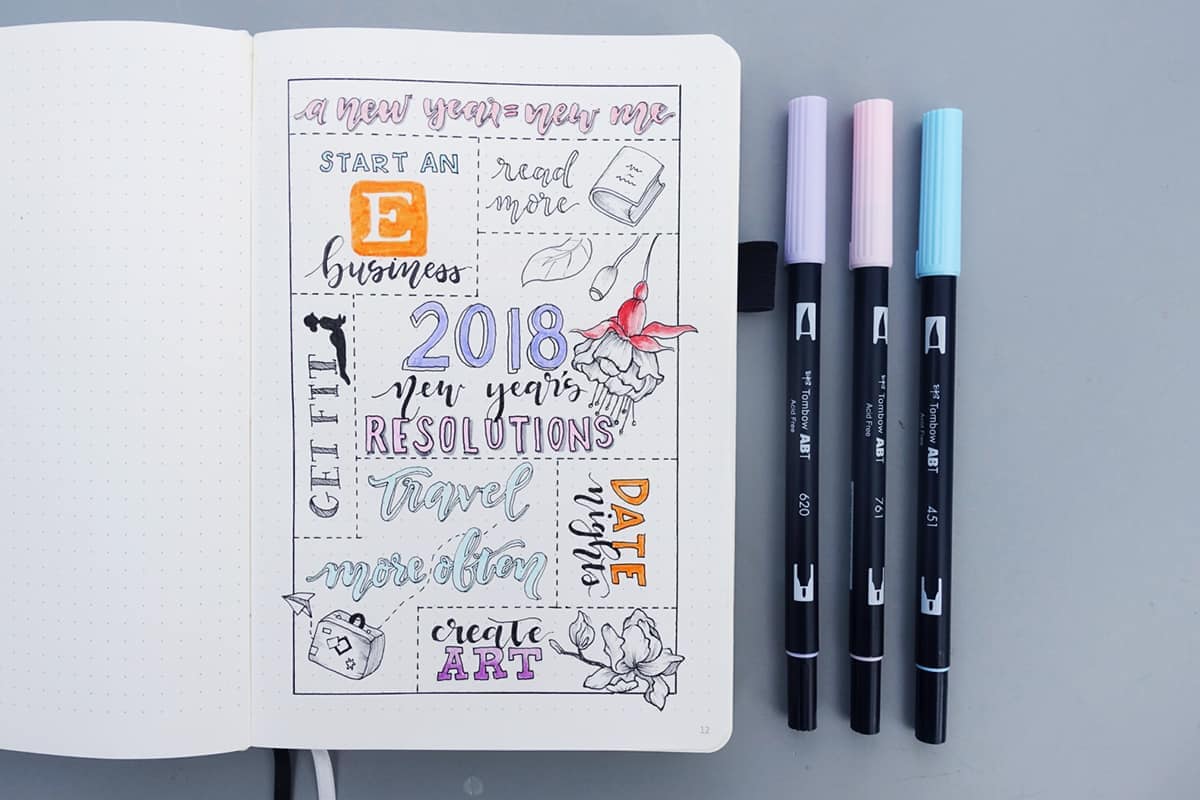 a new year = new me
START AN
E
business
read
more
GET FIT
2018
new year's
RESOLUTIONS
travel
more often
DATE
nights
create
ART
12
Tombow ABT
Acid Free
620
Tombow ABT
Acid Free
761
Tombow ABT
Acid Free
451